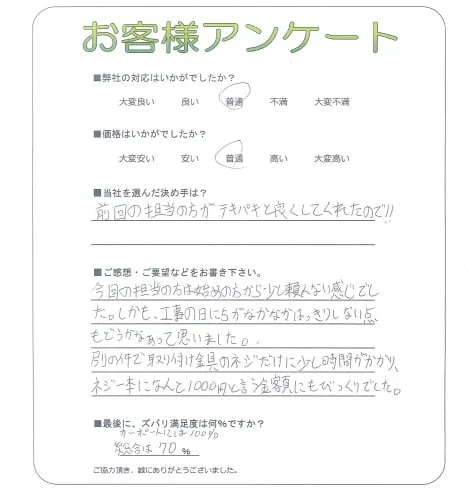 お客様アンケート
■弊社の対応はいかがでしたか？
大変良い 良い 普通 不満 大変不満
■価格はいかがでしたか？
大変安い 安い 普通 高い 大変高い
■当社を選んだ決め手は？
前回の担当の方がテキパキと良くしてくれたので!!
■ご感想・ご要望などをお書き下さい。
今回の担当の方は始めの方から少し頼りない感じでし
た。しかも、工事の日にちがなかなかはっきりしない点
もどうかなぁって思いました。
別の件で取り付け金具のネジだけに少し時間がかかり、
ネジ一本になんと1000円と言う金額にもびっくりでした。
■最後に、ズバリ満足度は何%ですか？
カーポートには100%
総合は 70 %
ご協力頂き、誠にありがとうございました。